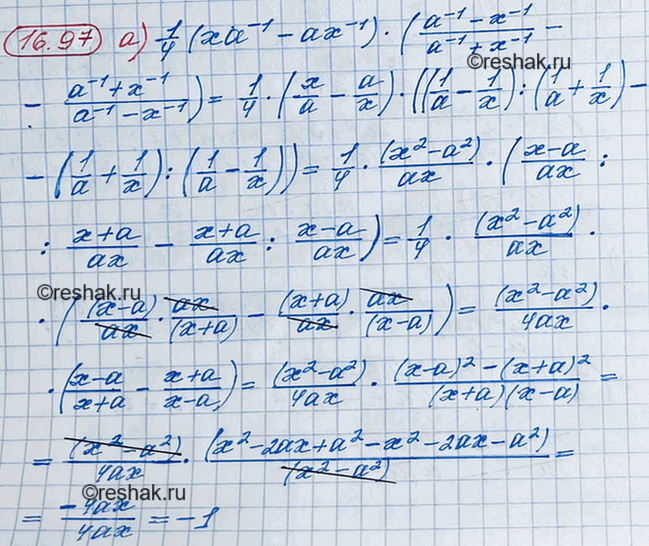 16.97 а) 1/4 (xa⁻¹ - ax⁻¹) · ( (a⁻¹ - x⁻¹)/(a⁻¹ + x⁻¹) -
©reshak.ru
- (a⁻¹ + x⁻¹)/(a⁻¹ - x⁻¹) ) = 1/4 · (x/a - a/x) · ((1/a - 1/x) : (1/a + 1/x) -
- (1/a + 1/x) : (1/a - 1/x)) = 1/4 · (x² - a²)/ax · ( (x-a)/ax :
: (x+a)/ax - (x+a)/ax : (x-a)/ax ) = 1/4 · (x² - a²)/ax ·
©reshak.ru
· ( (x-a)/ax · ax/(x+a) - (x+a)/ax · ax/(x-a) ) = (x² - a²)/4ax ·
· ( (x-a)/(x+a) - (x+a)/(x-a) ) = (x² - a²)/4ax · ((x-a)² - (x+a)²)/(x+a)(x-a) =
©reshak.ru
= (x² - a²)/4ax · (x² - 2ax + a² - x² - 2ax - a²)/(x² - a²) =
©reshak.ru
= -4ax/4ax = -1